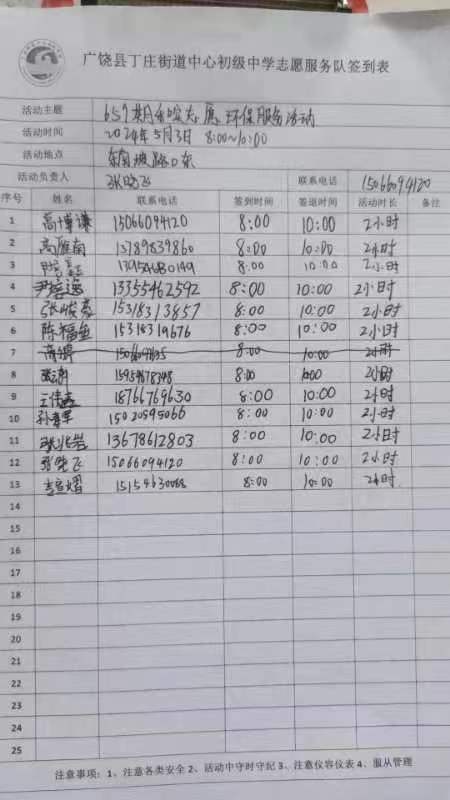 广饶县丁庄街道中心初级中学志愿服务队签到表
活动主题 657期 志愿环保服务活动
活动时间 2024年5月3日 8:00~10:00
活动地点
活动负责人 张晓飞 联系电话 15066094120
序号 姓名 联系电话 签到时间 签退时间 活动时长 备注
1 高博谦 15066094120 8:00 10:00 2小时
2 高雁南 13789839860 8:00 10:00 2小时
3 8:00 10:00 2小时
4 13355462592 8:00 10:00 2小时
5 张峻豪 15318313857 8:00 10:00 2小时
6 陈福鱼 15318319676 8:00 10:00 2小时
7 8:00 10:00 2小时
8 8:00 10:00 2小时
9 18766769630 8:00 10:00 2小时
10 15020595066 8:00 10:00 2小时
11 张兆岩 13678612803 8:00 10:00 2小时
12 张晓飞 15066094120 8:00 10:00 2小时
13 8:00 10:00 2小时
14
15
16
17
18
19
20
21
22
23
24
25
注意事项：1、注意各类安全 2、活动中守时守纪 3、注意仪容仪表 4、服从管理